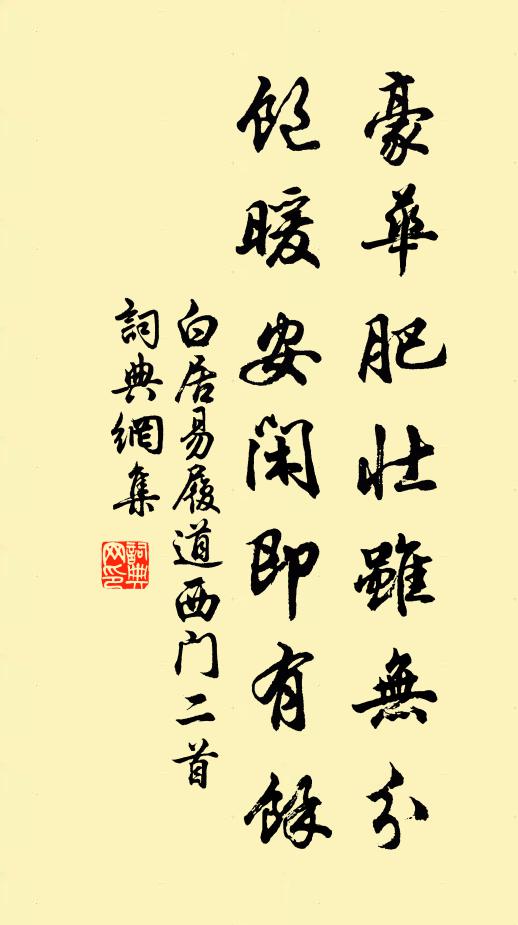 豪華肥壯雖無分
飽暖安閑即有餘
白居易履道西门二首
詞典網集
詞典网印